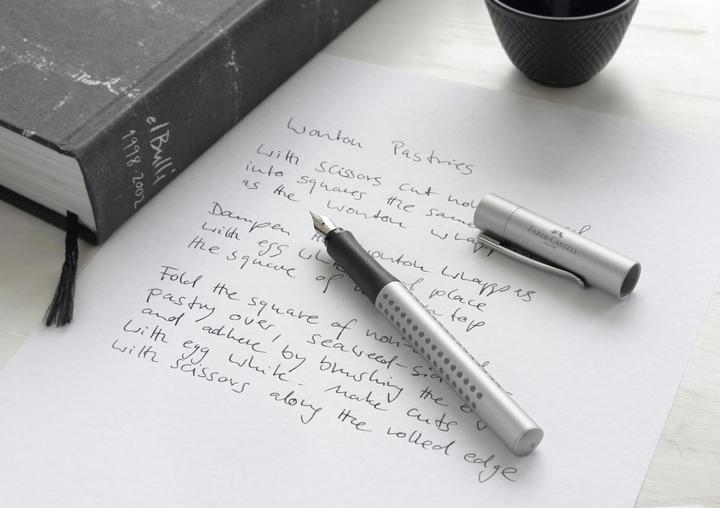 elBulli
1998-2002
Wonton Pastries
With scissors cut
into squares the
as the wonton
Dampen the wonton wrappers
with egg place
the square of top
Fold the square of
pastry over, seaweed-
and adhere by brushing the
with egg white. Make cuts
with scissors along the rolled edge
FABER-CASTELL